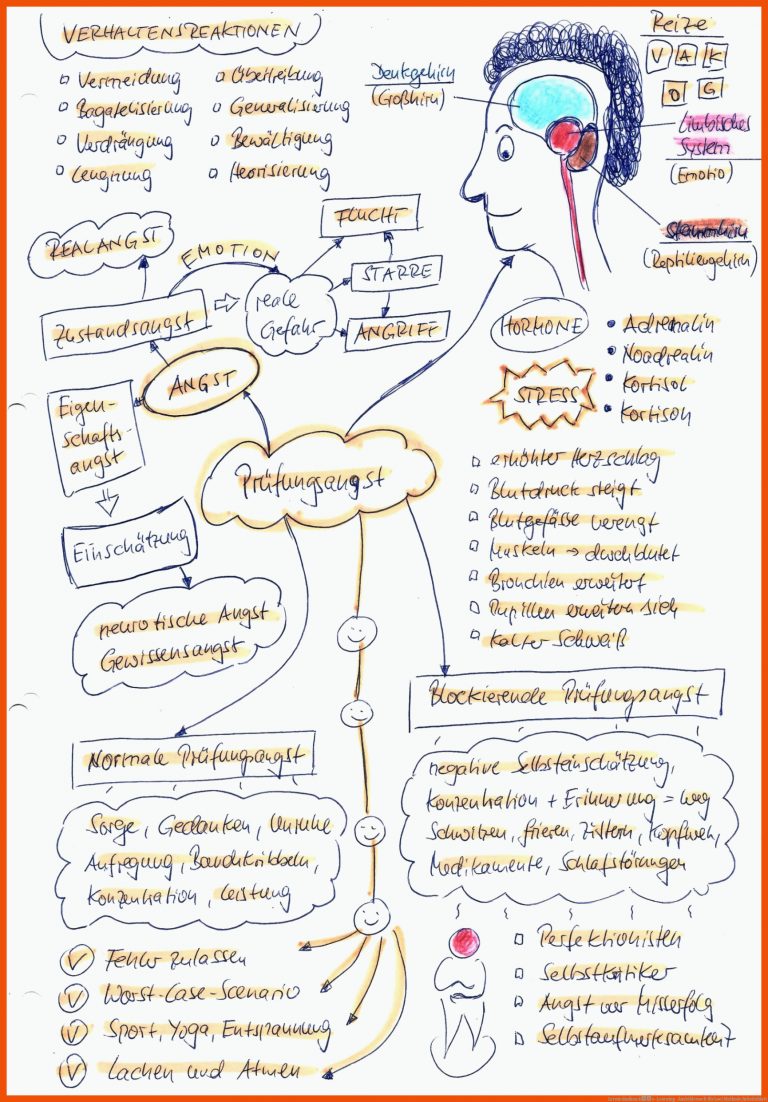 VERHALTENSREAKTIONEN
Vermeidung
Bagatelisierung
Verdrängung
Leugnung
Übertreibung
Generalisierung
Bewältigung
Heorisierung
Denkgehirn
(Großhirn)
Reize
V A K
O G
Limbisches
System
(Emotio)
Stammhirn
(Reptiliengehirn)
REALANGST
EMOTION
Zustandsangst
reale
Gefahr
FLUCHT
STARRE
ANGRIFF
ANGST
Eigen-
schafts-
angst
Einschätzung
neurotische Angst
Gewissensangst
HORMONE
Adrenalin
Noadrealin
Kortisol
Kortison
STRESS
Prüfungsangst
erhöhter Herzschlag
Blutdruck steigt
Blutgefässe verengt
Muskeln → durchblutet
Bronchien erweitert
Pupillen erweitern sich
Kalter Schweiß
Normale Prüfungsangst
Sorge, Gedanken, Unruhe
Aufregung, Bauchkribbeln,
Konzentration, Leistung
Blockierende Prüfungsangst
negative Selbsteinschätzung,
Konzentration + Erinnerung = weg
Schwitzen, frieren, Zittern, Kopfweh,
Medikamente, Schlafstörungen
Fehler zulassen
Worst-Case-Scenario
Sport, Yoga, Entspannung
Lachen und Atmen
Perfektionisten
Selbstkritiker
Angst vor Misserfolg
Selbstaufmerksamkeit